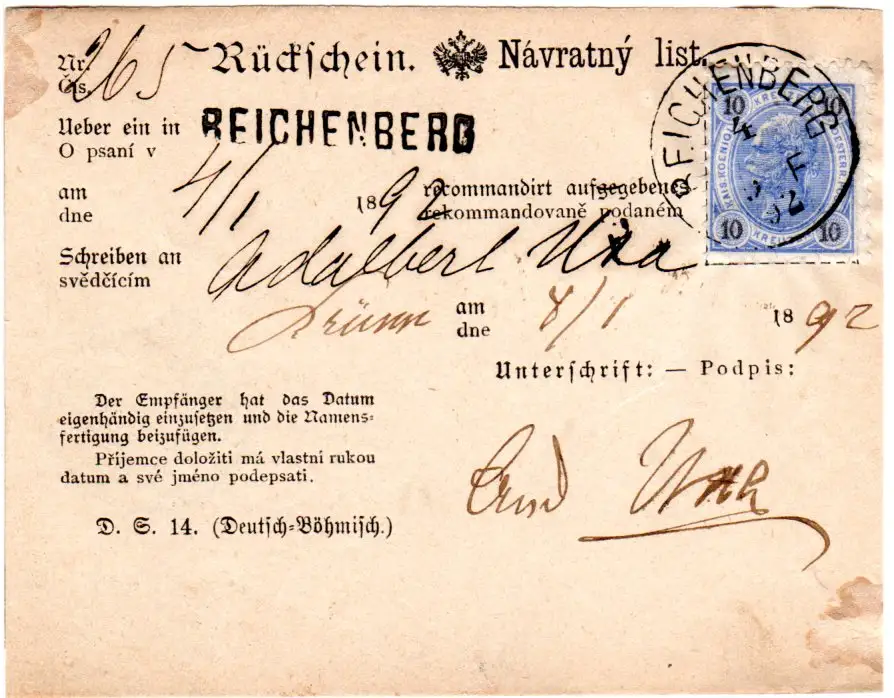 Nr. 265 Rückschein. Návratný list.
Čís.
Ueber ein in REICHENBERG
O psaní v
am 4/1 1892 recommandirt aufgegebenes
dne rekommandovaně podaném
Schreiben an Adalbert
svědčícím
Brünn am 8/1 1892
dne
Unterschrift: — Podpis:
Der Empfänger hat das Datum
eigenhändig einzusetzen und die Namens-
fertigung beizufügen.
Příjemce doložiti má vlastní rukou
datum a své jméno podepsati.
D. S. 14. (Deutsch-Böhmisch.)
REICHENBERG
4
92
10 KREUZER 10
KAIS. KOENIGL. OESTERR.
10 KREUZER 10